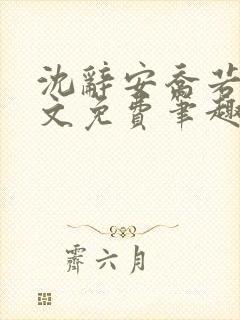 沈辞安乔若
文免费笔趣
霁六月